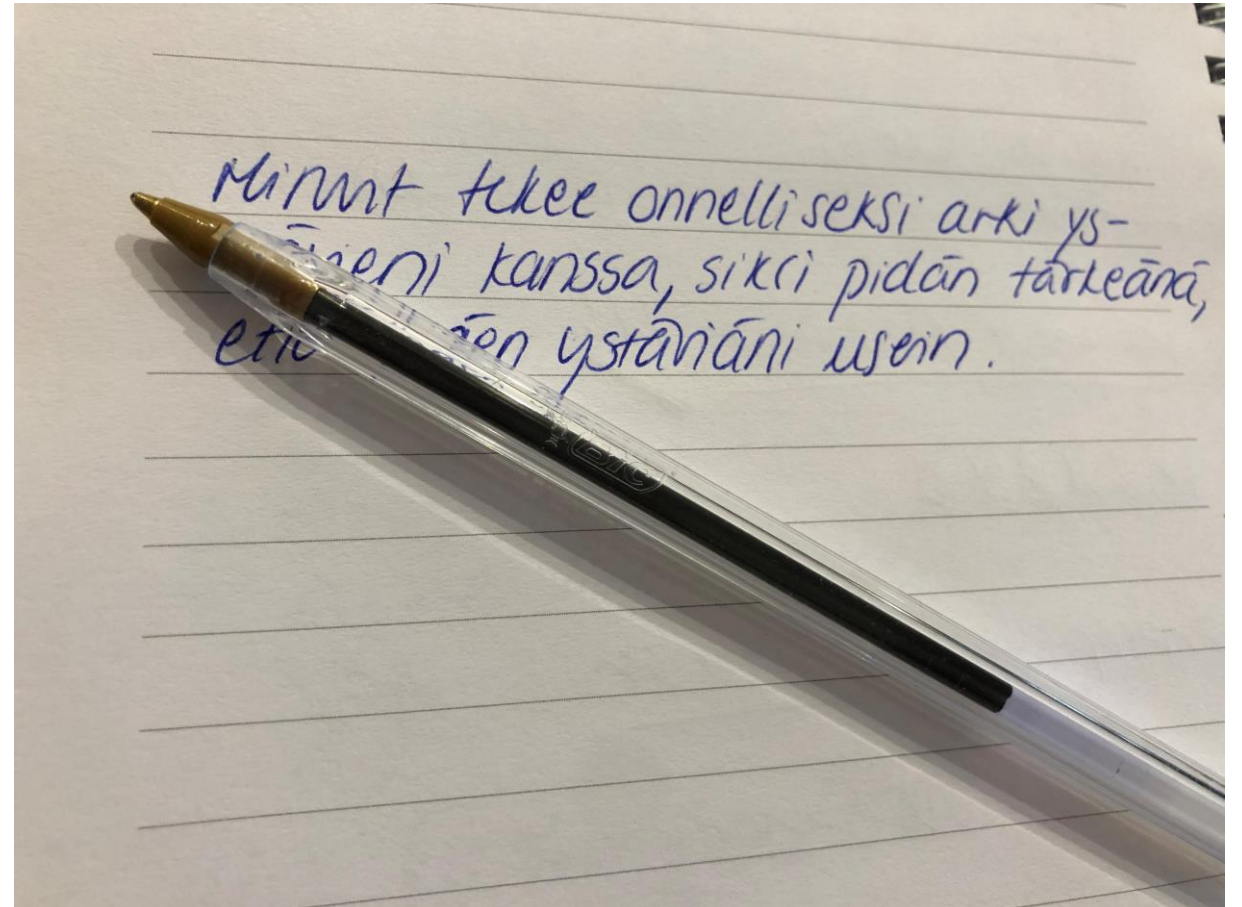 Minut tekee onnelliseksi arki ys-
kanssa, siksi pidän tärkeänä,
ystäviäni usein.
BIC